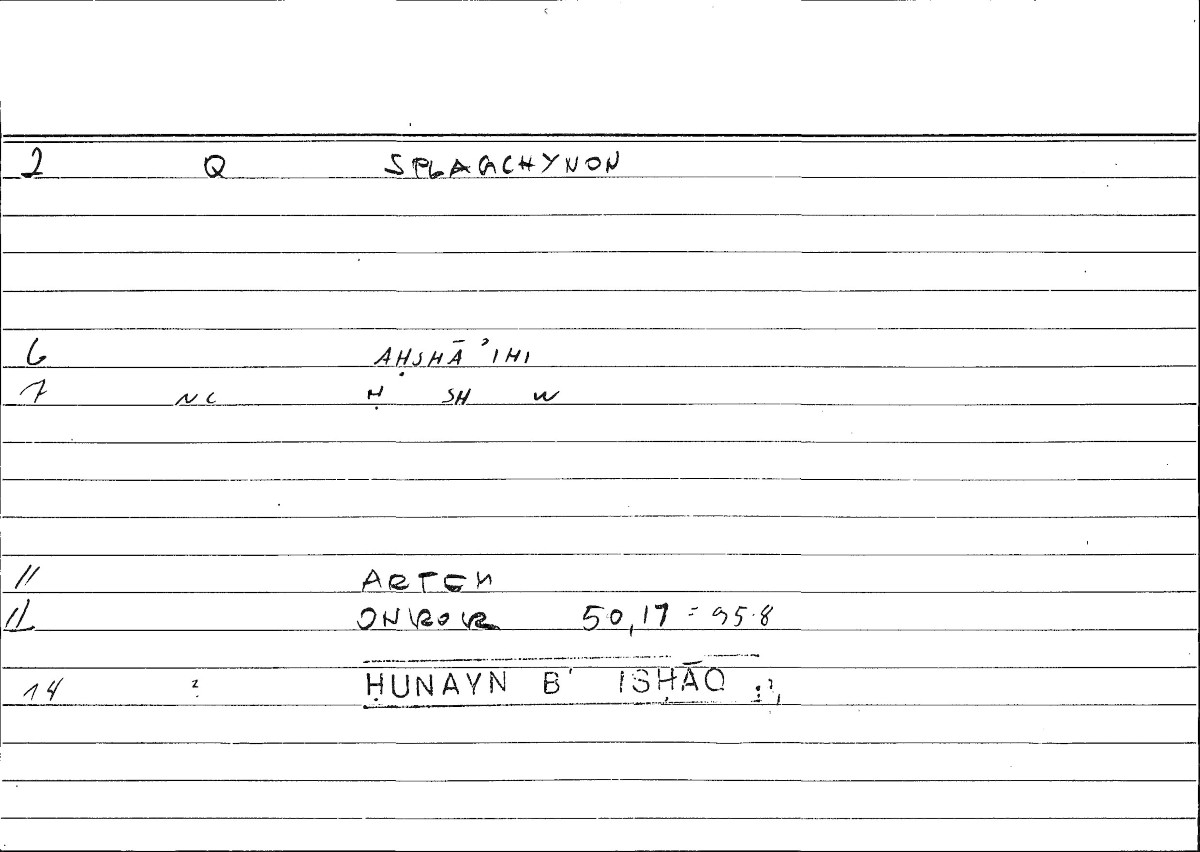 2 Q SPLAGCHYNON
6 AḤSHĀ'IHI
7 NC Ḥ SH W
11 ARTEM
12 ONIROKR 50,17 = 95.8
14 ḤUNAYN B' ISḤĀQ